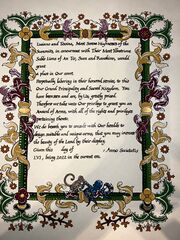 Lucius and Desina, Most Serene Highnesses of the
Summits, in concurrence with Their Most Illustrious
Noble Lions of An Tir, Juan and Penthisue, would
grant
a place in Our court.
Perpetually laboring in their honored service, to the
Our Grand Principality and Sacred Kingdom. You
have become and are, by Us, greatly prized.
Therefore we take unto Our privilege to grant you an
Award of Arms, with all of the rights and privileges
pertaining thereto.
We do beseech you to consult with Our heralds to
design suitable and unique arms, that you may increase
the beauty of the Land by their display.
Given this day of , Anno Societatis
LVI, being 2022 in the current era.